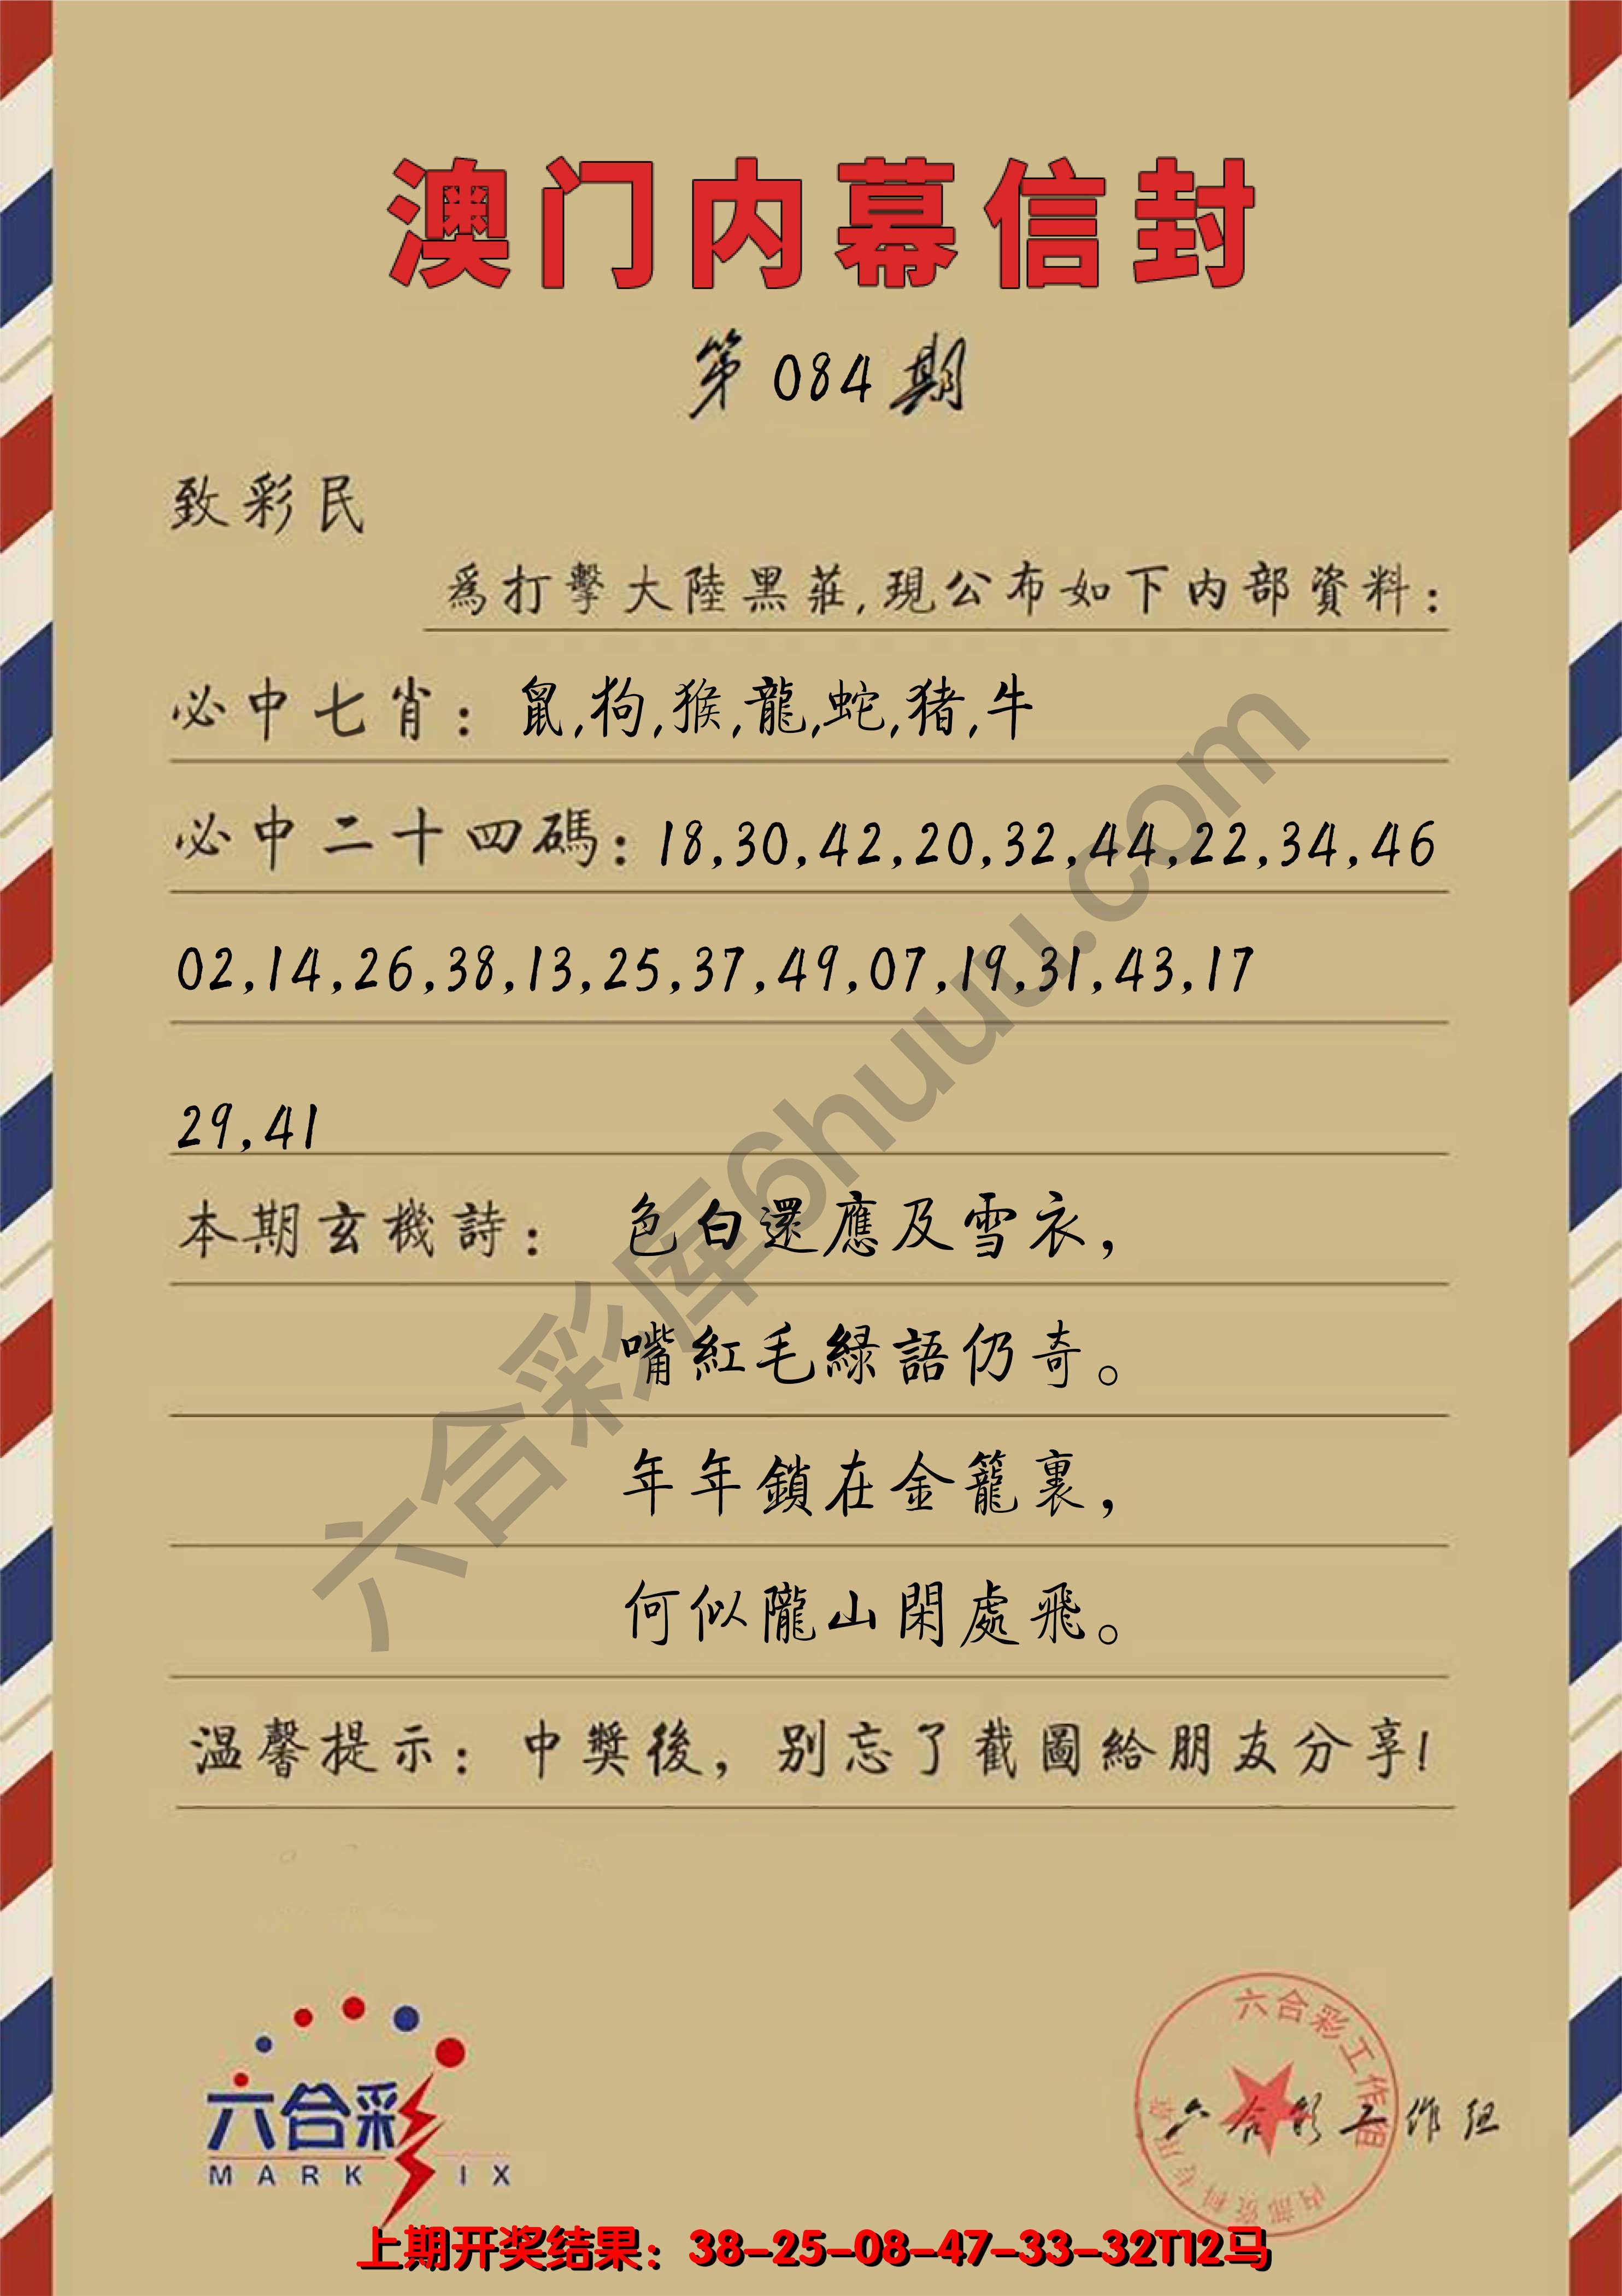 澳门内幕信封
第084期
致彩民
爲打擊大陸黑莊,現公布如下内部資料:
必中七肖: 鼠,狗,猴,龍,蛇,猪,牛
必中二十四碼: 18,30,42,20,32,44,22,34,46
02,14,26,38,13,25,37,49,07,19,31,43,17
29,41
本期玄機詩: 色白還應及雪衣,
嘴紅毛緑語仍奇。
年年鎖在金籠裏,
何似隴山閑處飛。
温馨提示: 中獎後, 别忘了截圖給朋友分享!
六合彩库6huuu.com
六合彩
MARK IX
六合彩工作组
内部资料专用章
六合彩工作组
上期开奖结果: 38-25-08-47-33-32T12马